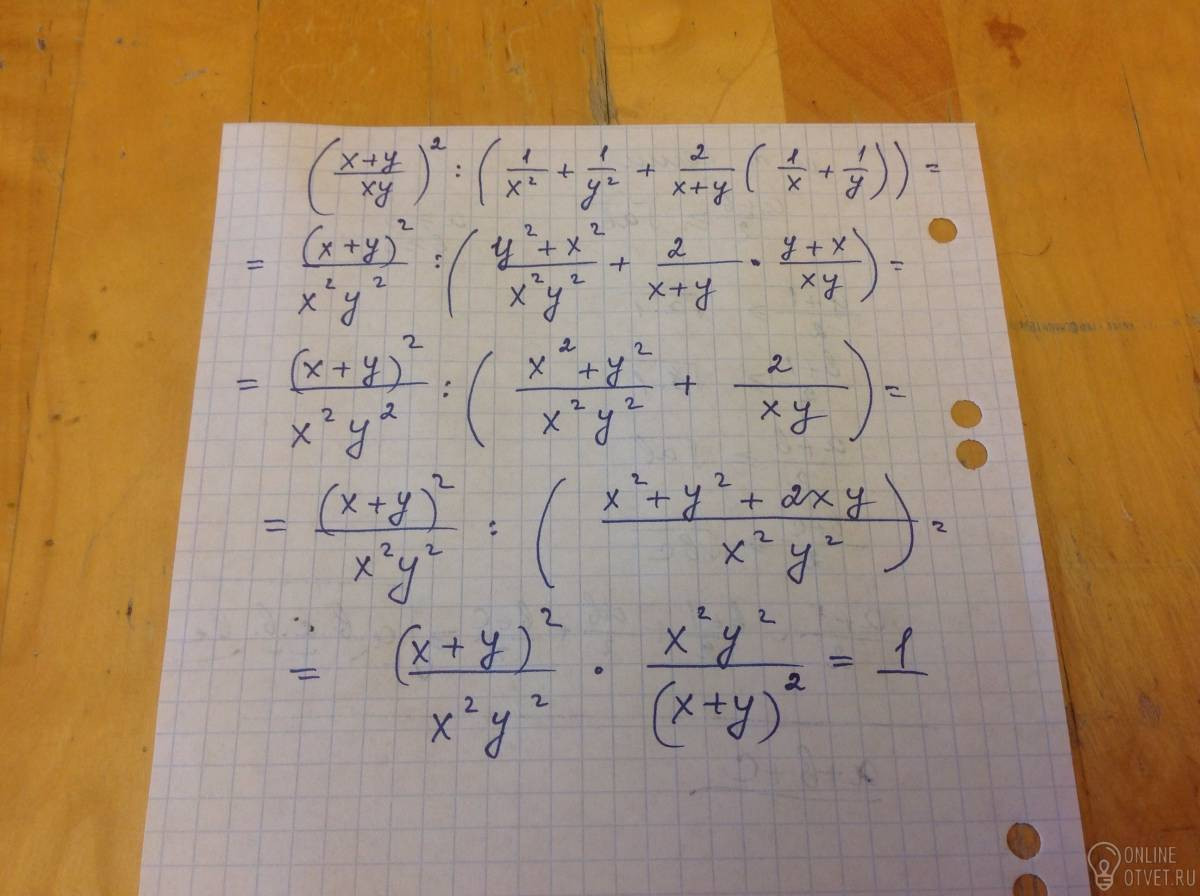 ((x+y)/(xy))² : (1/x² + 1/y² + 2/(x+y) (1/x + 1/y)) =
= (x+y)²/(x²y²) : ((y²+x²)/(x²y²) + 2/(x+y) · (y+x)/(xy)) =
= (x+y)²/(x²y²) : ((x²+y²)/(x²y²) + 2/(xy)) =
= (x+y)²/(x²y²) : ((x²+y²+2xy)/(x²y²)) =
= (x+y)²/(x²y²) · x²y²/(x+y)² = 1
ONLINE
OTVET.RU